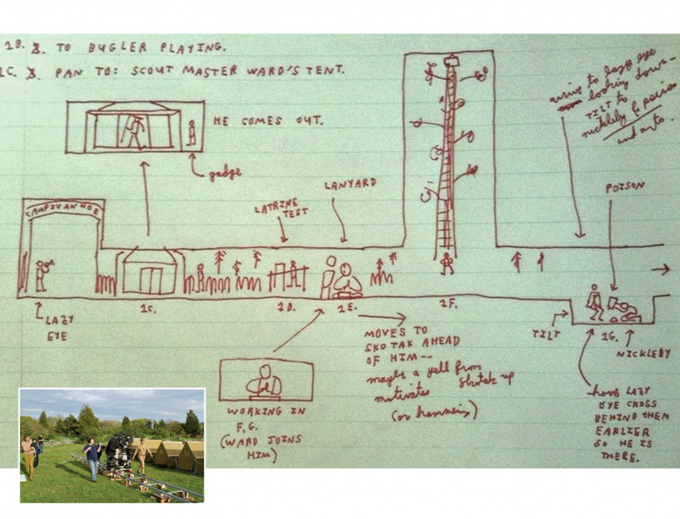 1B. TO BUGLER PLAYING.
1C. PAN TO: SCOUT MASTER WARD'S TENT.
HE COMES OUT.
gadge
arrive to lazy eye
looking down--
TILT to
nickleby & poison
and auto.
POISON
LANYARD
LATRINE
TEST
CAMP IVANHOE
LAZY
EYE
1C.
1D.
1E.
1F.
TILT
1G.
NICKLEBY
MOVES TO
SKOTAK AHEAD
OF HIM--
maybe a yell from
Skotak up
motivates
(or hammering)
WORKING IN
F.G.
(WARD JOINS
HIM)
have LAZY
EYE CROSS
BEHIND THEM
EARLIER
SO HE IS
THERE.